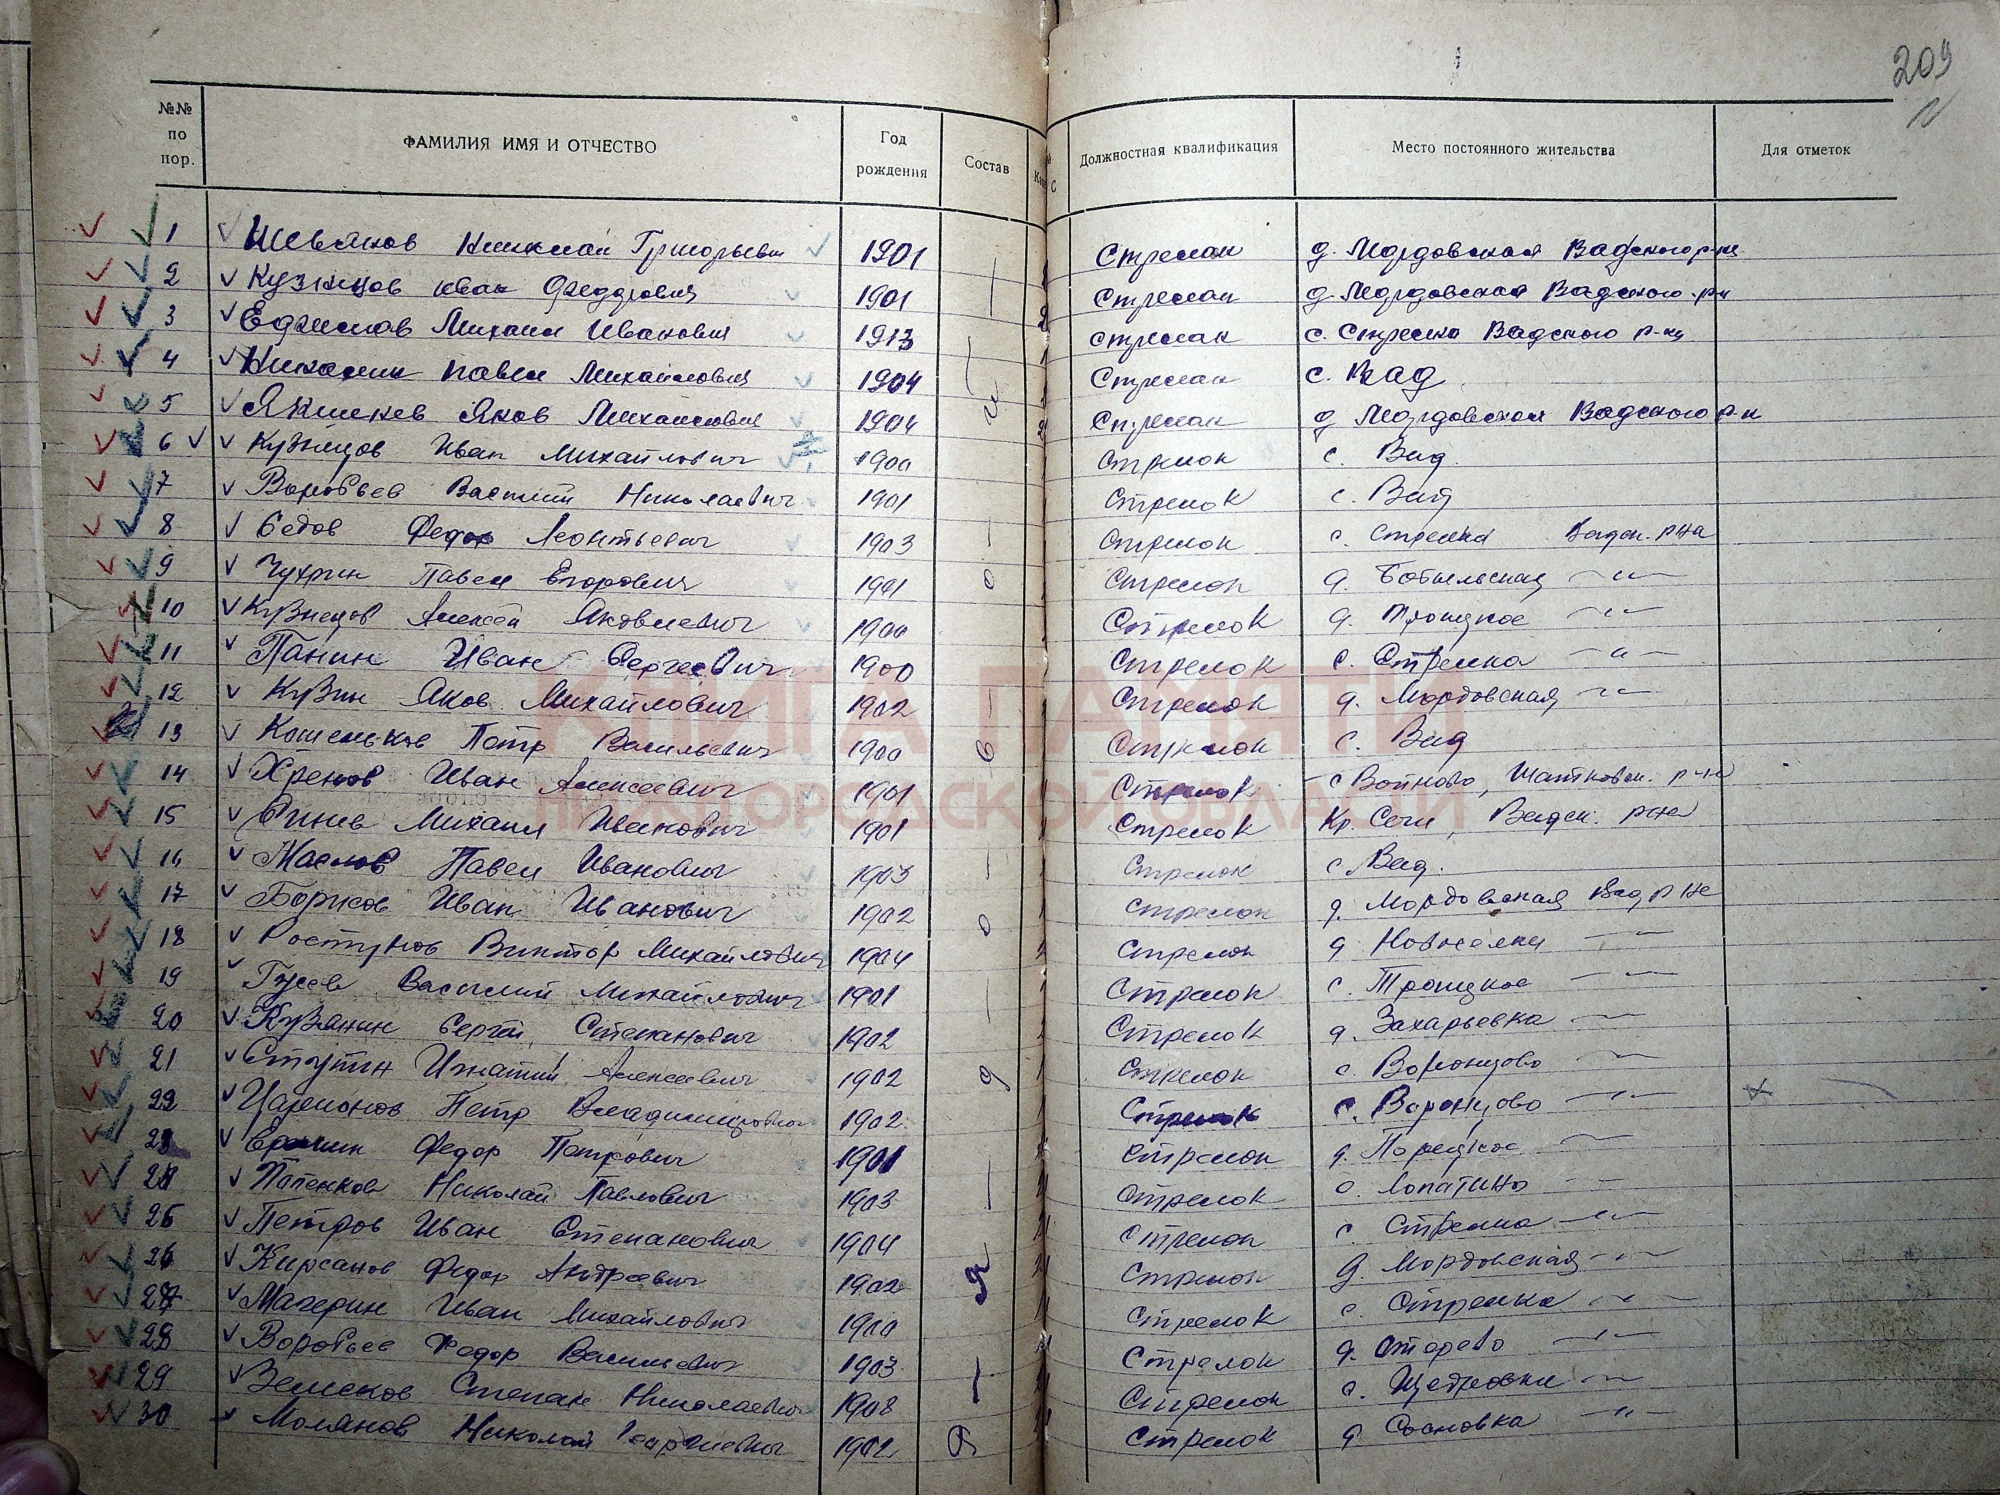 209
№№ по пор. ФАМИЛИЯ ИМЯ И ОТЧЕСТВО Год рождения Состав Должностная квалификация Место постоянного жительства Для отметок
1 Николай Григорьевич 1901 Стрелок д. Мордовская Вадского р-на
2 Кузнецов Иван Федорович 1901 Стрелок д. Мордовская Вадского р-н
3 Михаил Иванович 1913 стрелок с. Стрелка Вадского р-на
4 Павел Михайлович 1904 Стрелок с. Вад
5 Яков Михайлович 1904 Стрелок д Мордовская Вадского р-н
6 Кузнецов Иван Михайлович 1900 Стрелок с. Вад.
7 Воробьев Василий Николаевич 1901 Стрелок с. Вад
8 Седов Федор Леонтьевич 1903 Стрелок с. Стрелка Вадск. р-на
9 Чухрин Павел Егорович 1901 Стрелок д. Бобыльская —"—
10 Кузнецов Алексей Яковлевич 1900 Стрелок д. Троицкое —"—
11 Панин Иван Сергеевич 1900 Стрелок с. Стрелка —"—
12 Кузин Яков Михайлович 1902 Стрелок д. Мордовская —"—
13 Петр Васильевич 1900 Стрелок с. Вад
14 Хренов Иван Алексеевич 1901 Стрелок с Войново, Шатковск. р-н
15 Синев Михаил Иванович 1901 Стрелок Кр. Вадск. р-на
16 Маслов Павел Иванович 1903 Стрелок с. Вад.
17 Борисов Иван Иванович 1902 Стрелок д. Мордовская Вад р-на
18 Виктор Михайлович 1904 Стрелок д Новоселки —"—
19 Гусев Василий Михайлович 1901 Стрелок с. Троицкое —"—
20 Кузянин Сергей Степанович 1902 Стрелок д. Захарьевка —"—
21 Игнатий Алексеевич 1902 Стрелок с Воронцово —"—
22 Петр Владимирович 1902. Стрелок с. Воронцово —"—
23 Федор Петрович 1901 Стрелок —"—
24 Николай Павлович 1903 Стрелок с. Лопатино —"—
25 Петров Иван Степанович 1904 Стрелок с Стрелка —"—
26 Кирсанов Федор Андреевич 1902 Стрелок д. Мордовская —"—
27 Иван Михайлович 1900 Стрелок с. Стрелка —"—
28 Воробьев Федор Васильевич 1903 Стрелок —"—
29 Земсков Степан Николаевич 1908 Стрелок —"—
30 Молянов Николай 1902 Стрелок д Сосновка —"—
КНИГА ПАМЯТИ
НИЖЕГОРОДСКОЙ ОБЛАСТИ